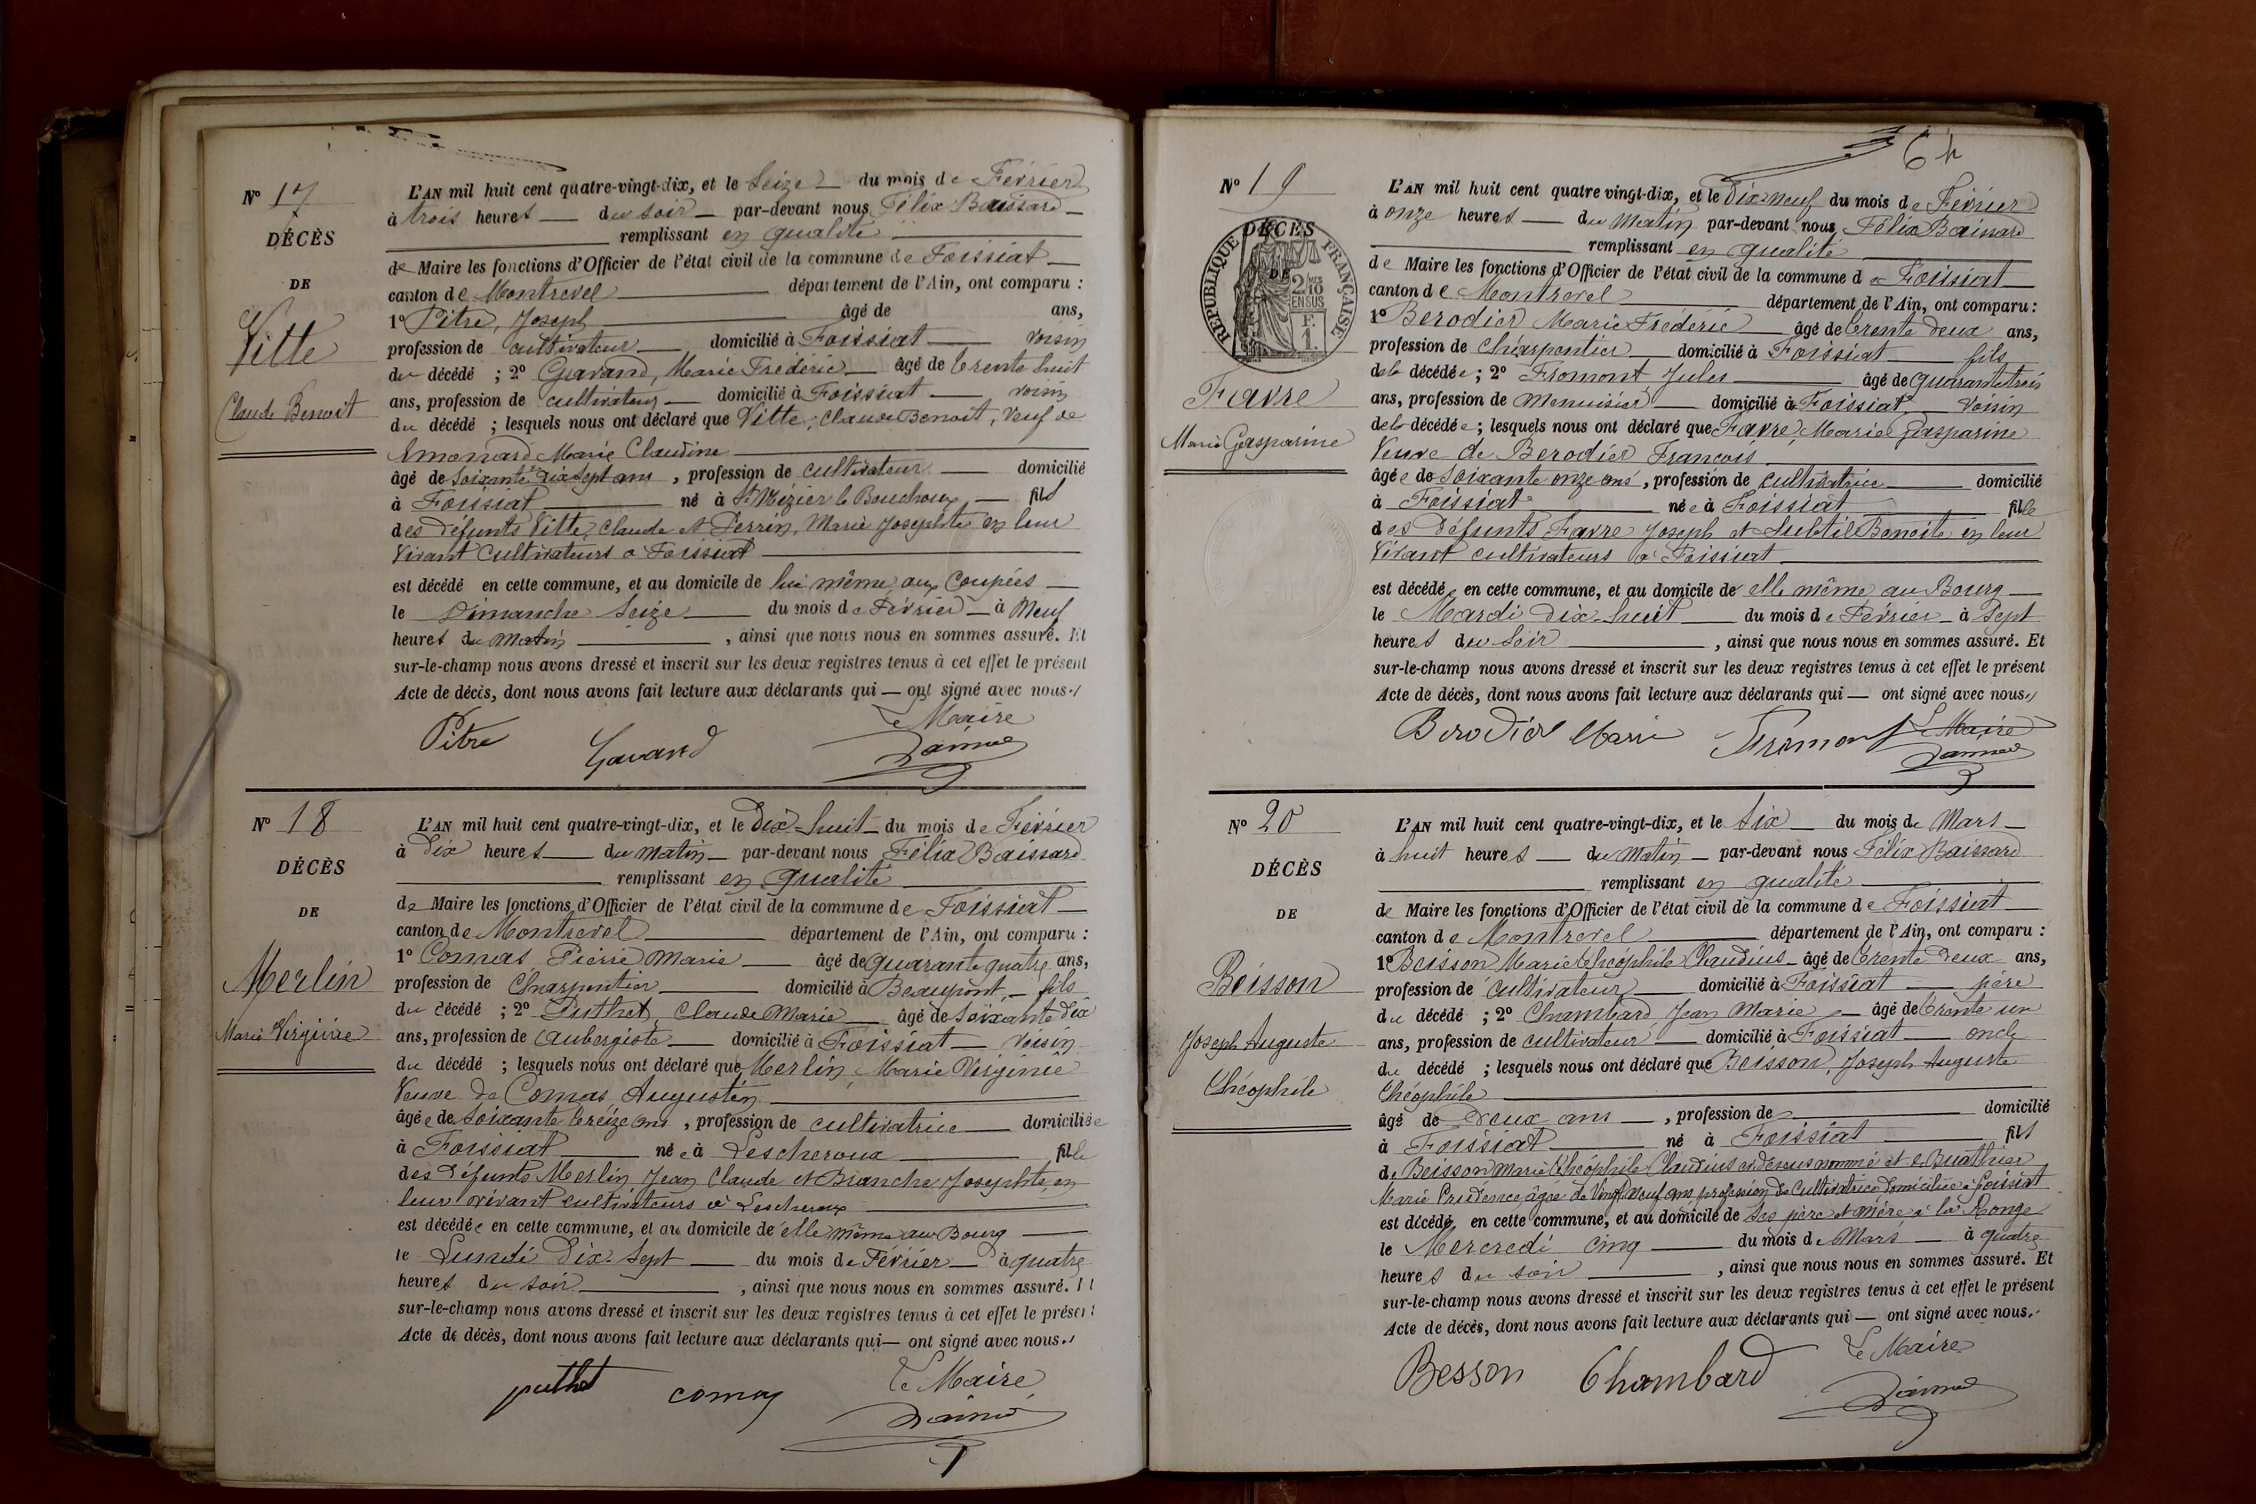 Nº 17
DÉCÈS
DE
Vitte
Claude Benoit
L'AN mil huit cent quatre-vingt-dix, et le Seize du mois de Février
à trois heures du soir par-devant nous Félix Baissard
remplissant en qualité
de Maire les fonctions d'Officier de l'état civil de la commune de Foissiat
canton de Montrevel département de l'Ain, ont comparu :
1º Pitre, Joseph âgé de ans,
profession de cultivateur domicilié à Foissiat voisin
du décédé ; 2º Gavand, Marie Frédéric âgé de trente huit
ans, profession de cultivateur domicilié à Foissiat voisin
du décédé ; lesquels nous ont déclaré que Vitte, Claude Benoit, veuf de
Emonard Marie Claudine
âgé de soixante dix sept ans, profession de cultivateur domicilié
à Foissiat né à St Nizier le Bouchoux fils
des défunts Vitte, Claude et Perrin, Marie Josephte en leur
vivant cultivateurs à Foissiat
est décédé en cette commune, et au domicile de lui même aux Coupées
le Dimanche Seize du mois de Février à Neuf
heures du Matin, ainsi que nous nous en sommes assuré. Et
sur-le-champ nous avons dressé et inscrit sur les deux registres tenus à cet effet le présent
Acte de décès, dont nous avons fait lecture aux déclarants qui — ont signé avec nous.
Le Maire
Pitre Gavand
Nº 18
DÉCÈS
DE
Merlin
Marie Virginie
L'AN mil huit cent quatre-vingt-dix, et le Dix-huit du mois de Février
à Dix heures du matin par-devant nous Félix Baissard
remplissant en qualité
de Maire les fonctions d'Officier de l'état civil de la commune de Foissiat
canton de Montrevel département de l'Ain, ont comparu :
1º Comas Pierre Marie âgé de quarante quatre ans,
profession de Charpentier domicilié à Beaupont fils
du décédé ; 2º Puthet, Claude Marie âgé de soixante dix
ans, profession de aubergiste domicilié à Foissiat voisin
du décédé ; lesquels nous ont déclaré que Merlin, Marie Virginie
Veuve de Comas Augustin
âgée de soixante treize ans, profession de cultivatrice domiciliée
à Foissiat née à Lescheroux fille
des défunts Merlin Jean Claude et Branche Josephte en
leur vivant cultivateurs à Lescheroux
est décédée en cette commune, et au domicile de elle même au Bourg
le Lundi Dix-Sept du mois de Février à quatre
heures du soir, ainsi que nous nous en sommes assuré. Et
sur-le-champ nous avons dressé et inscrit sur les deux registres tenus à cet effet le présent
Acte de décès, dont nous avons fait lecture aux déclarants qui — ont signé avec nous.
puthet comas Le Maire
64
Nº 19
DÉCÈS
DE
RÉPUBLIQUE FRANÇAISE
2/10 EN SUS
F. 1.
Favre
Marie Gasparine
L'AN mil huit cent quatre vingt-dix, et le Dix-neuf du mois de Février
à onze heures du Matin par-devant nous Félix Baissard
remplissant en qualité
de Maire les fonctions d'Officier de l'état civil de la commune de Foissiat
canton de Montrevel département de l'Ain, ont comparu :
1º Berodier Marie Frédéric âgé de trente deux ans,
profession de Charpentier domicilié à Foissiat fils
de la décédée ; 2º Fromont Jules âgé de quarante trois
ans, profession de Menuisier domicilié à Foissiat voisin
de la décédée ; lesquels nous ont déclaré que Favre, Marie Gasparine
Veuve de Berodier François
âgée de soixante onze ans, profession de cultivatrice domicilié
à Foissiat née à Foissiat fille
des défunts Favre Joseph et Subtil Benoite en leur
vivant cultivateurs à Foissiat
est décédé en cette commune, et au domicile de elle même au Bourg
le Mardi dix-huit du mois de Février à Sept
heures du Soir, ainsi que nous nous en sommes assuré. Et
sur-le-champ nous avons dressé et inscrit sur les deux registres tenus à cet effet le présent
Acte de décès, dont nous avons fait lecture aux déclarants qui — ont signé avec nous.
Berodier Marie Fromont Le Maire
Nº 20
DÉCÈS
DE
Beisson
Joseph Auguste
Théophile
L'AN mil huit cent quatre-vingt-dix, et le Six du mois de Mars
à huit heures du Matin par-devant nous Félix Baissard
remplissant en qualité
de Maire les fonctions d'Officier de l'état civil de la commune de Foissiat
canton de Montrevel département de l'Ain, ont comparu :
1º Beisson Marie Théophile Claudius âgé de trente deux ans,
profession de cultivateur domicilié à Foissiat père
du décédé ; 2º Chambard Jean Marie âgé de trente un
ans, profession de cultivateur domicilié à Foissiat oncle
du décédé ; lesquels nous ont déclaré que Beisson, Joseph Auguste
Théophile
âgé de Deux ans, profession de domicilié
à Foissiat né à Foissiat fils
de Beisson Marie Théophile Claudius ci dessus nommé et de Buathier
Marie Prudence âgée de vingt neuf ans profession de Cultivatrice domiciliée à Foissiat
est décédé en cette commune, et au domicile de ses père et mère à la Ronge
le Mercredi cinq du mois de Mars à quatre
heures du soir, ainsi que nous nous en sommes assuré. Et
sur-le-champ nous avons dressé et inscrit sur les deux registres tenus à cet effet le présent
Acte de décès, dont nous avons fait lecture aux déclarants qui — ont signé avec nous.
Besson Chambard Le Maire